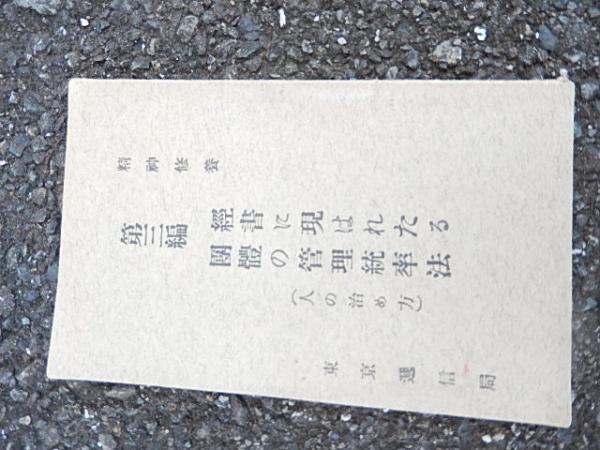 精神修養
第三編
經書に現はれたる
團體の管理統率法
(人の治め方)
東京遞信局